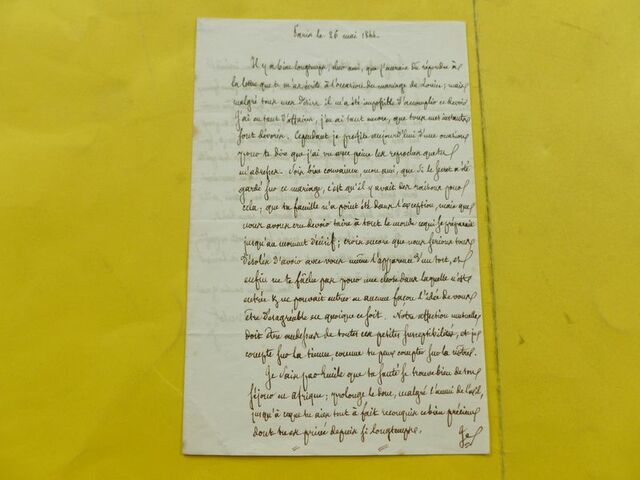 Paris le 26 mai 1844.
Il y a bien longtemps, cher ami, que j'aurais dû répondre à
la lettre que tu m'as écrite à l'occasion du mariage de Louise; mais
malgré tous mes désirs il m'a été impossible d'accomplir ce devoir
j'ai eu tant d'affaires, j'en ai tant encore, que tous mes instants
sont dévorés. Cependant je profite aujourd'hui d'une occasion
pour te dire que j'ai vu avec peine les reproches que tu
m'adresses. Sois bien convaincu, mon ami, que si le secret a été
gardé sur ce mariage, c'est qu'il y avait des raisons pour
cela; que ta famille n'a point été dans l'exception, mais que
nous avons cru devoir taire à tout le monde ce qui se préparait
jusqu'au moment décisif; crois encore que nous serions tous
désolés d'avoir avec vous même l'apparence d'un tort, et
enfin ne te fâche pas pour une chose dans laquelle n'est
entrée & ne pouvait entrer en aucune façon l'idée de vous
être désagréable en quoique ce soit. Notre affection mutuelle
doit être au dessus de toutes ces petites susceptibilités, et je
compte sur la tienne, comme tu peux compter sur la nôtre.
Je sais par Emile que ta santé se trouve bien de ton
séjour en afrique; prolonge le donc, malgré l'ennui de l'exil,
jusqu'à ce que tu aies tout à fait reconquis ce bien précieux
dont tu es privé depuis si longtemps. Je